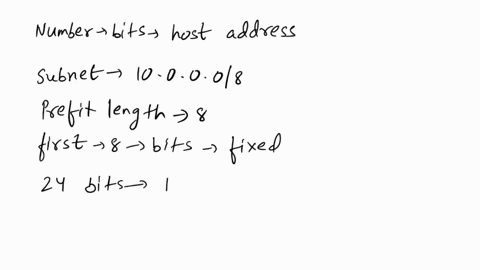 Number → bits → host address
Subnet → 10.0.0.0/8
Prefit length → 8
first → 8 → bits → fixed
24 bits → 1